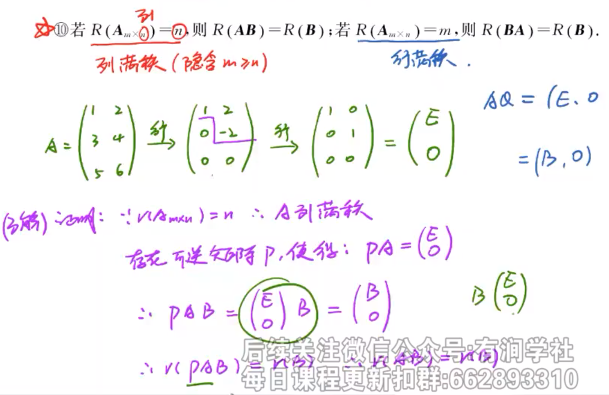 ⑩若 R(A_{m×n})=n,则 R(AB)=R(B);若 R(A_{m×n})=m,则 R(BA)=R(B).
列
列满秩(隐含 m≥n)
行满秩.
A = (1 2; 3 4; 5 6) 行→ (1 2; 0 -2; 0 0) 行→ (1 0; 0 1; 0 0) = (E; 0)
AQ = (E, 0
= (B, 0)
(了解) 证明: ∵ r(A_{m×n}) = n ∴ A列满秩
存在可逆矩阵P, 使得: PA = (E; 0)
∴ PAB = (E; 0) B = (B; 0)
B (E; 0)
∴ r(PAB) = r(B) ∴ r(AB) = r(B)
后续关注微信公众号:有润学社
每日课程更新扣群:662893310